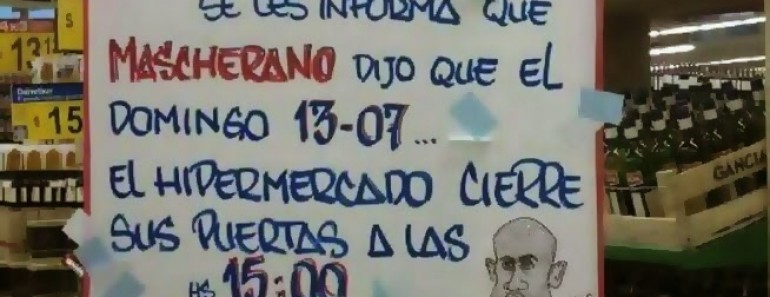 SE LES INFORMA QUE
MASCHERANO DIJO QUE EL
DOMINGO 13-07...
EL HIPERMERCADO CIERRE
SUS PUERTAS A LAS
HS 15:00
$
13
15
GANCIA